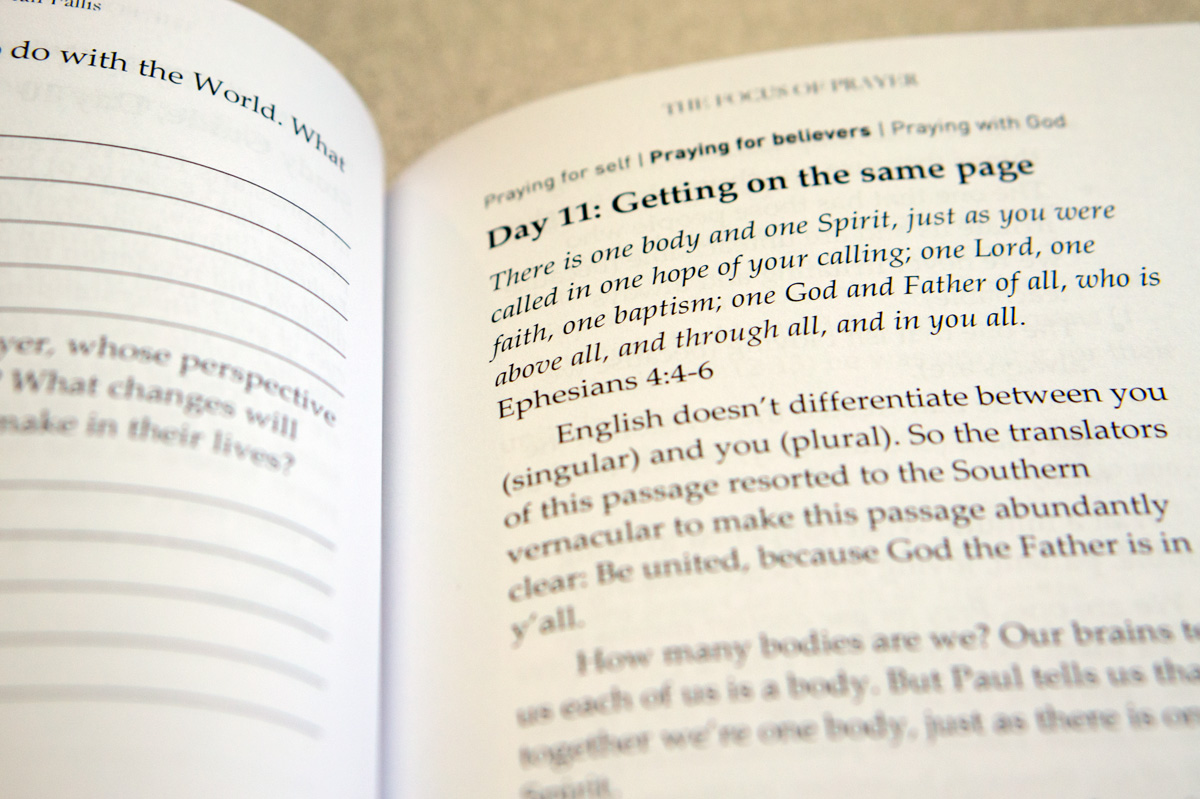 do with the World. What
yer, whose perspective
? What changes will
make in their lives?
THE FOCUS OF PRAYER
Praying for self | Praying for believers | Praying with God
Day 11: Getting on the same page
There is one body and one Spirit, just as you were
called in one hope of your calling; one Lord, one
faith, one baptism; one God and Father of all, who is
above all, and through all, and in you all.
Ephesians 4:4-6
English doesn't differentiate between you
(singular) and you (plural). So the translators
of this passage resorted to the Southern
vernacular to make this passage abundantly
clear: Be united, because God the Father is in
y'all.
How many bodies are we? Our brains
us each of us is a body. But Paul tells us
together we're one body, just as there is
Spirit.